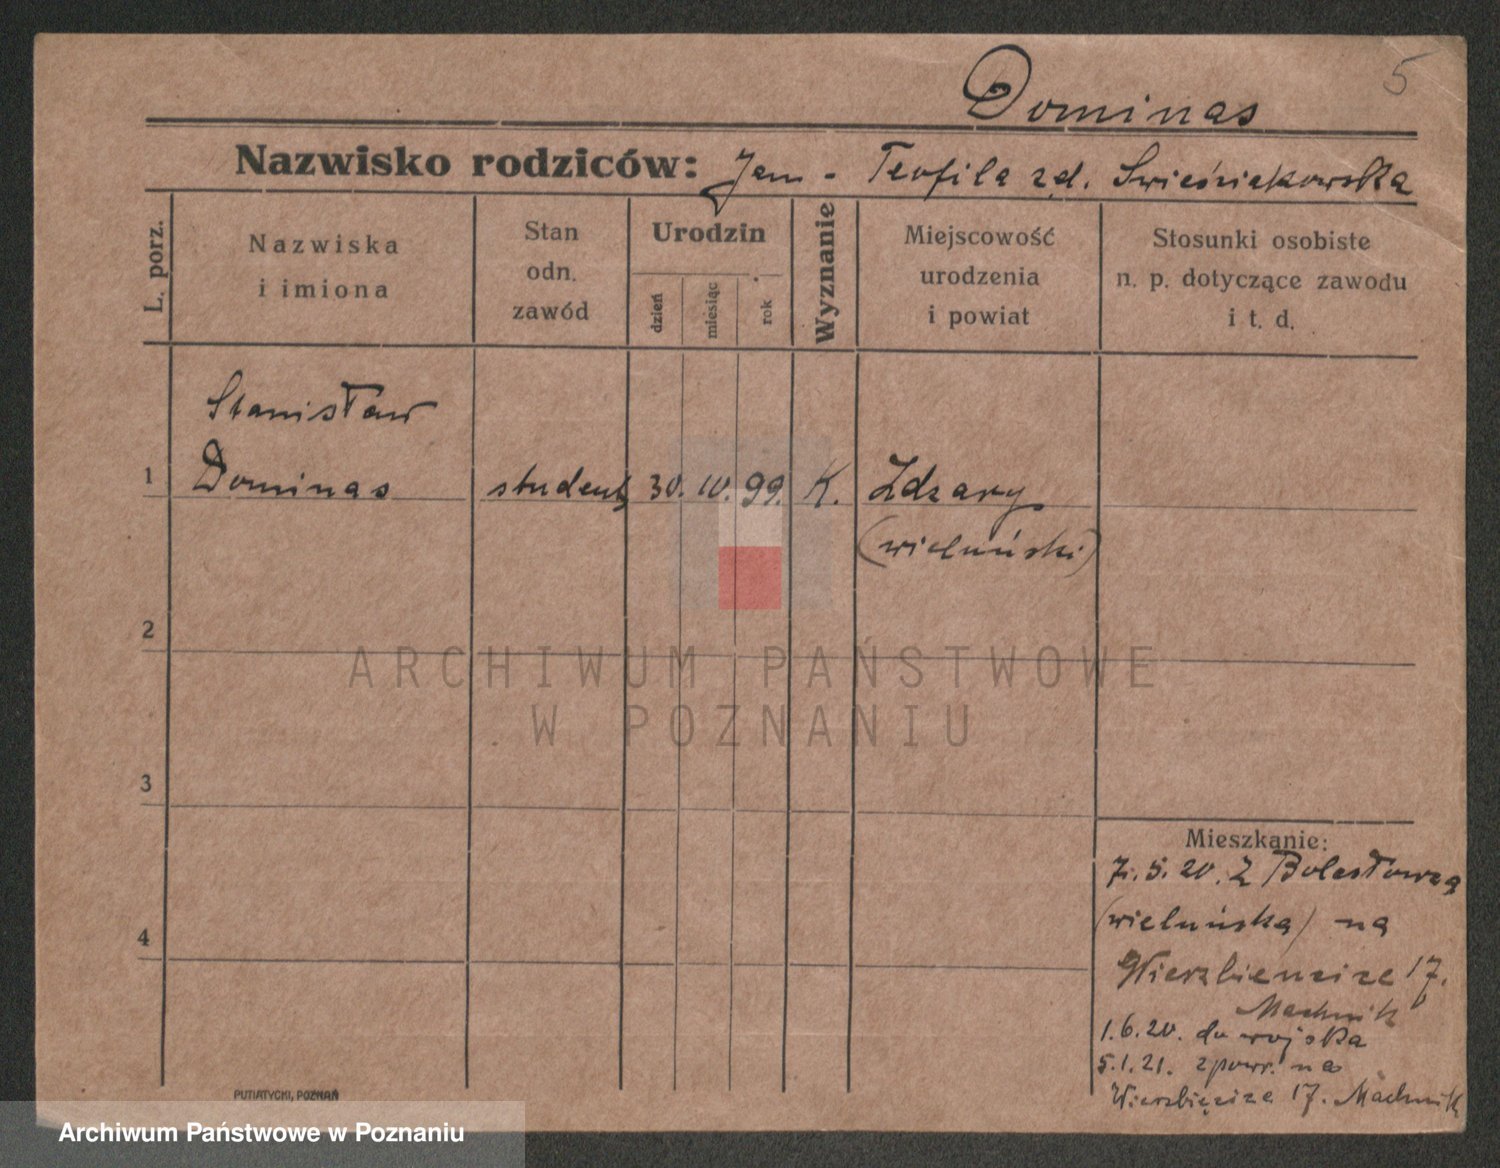 5
Dominas
Nazwisko rodziców: Jan - Teofila z d. Swieśniakowska
L. porz.
Nazwiska
i imiona
Stan
odn.
zawód
Urodzin
dzień
miesiąc
rok
Wyznanie
Miejscowość
urodzenia
i powiat
Stosunki osobiste
n. p. dotyczące zawodu
i t. d.
Stanisław
1 Dominas student 30. 10. 99. K. Zdzary
(wieluński)
2
ARCHIWUM PAŃSTWOWE
W POZNANIU
3
Mieszkanie:
7. 5. 20. Z Bolesławca
(wieluńska) na
4
Wierzbiencice 17.
Machnik
1. 6. 20. do wojska
5. 1. 21. z powr. na
Wierzbięcice 17. Machnik
PUTIATYCKI, POZNAŃ
Archiwum Państwowe w Poznaniu